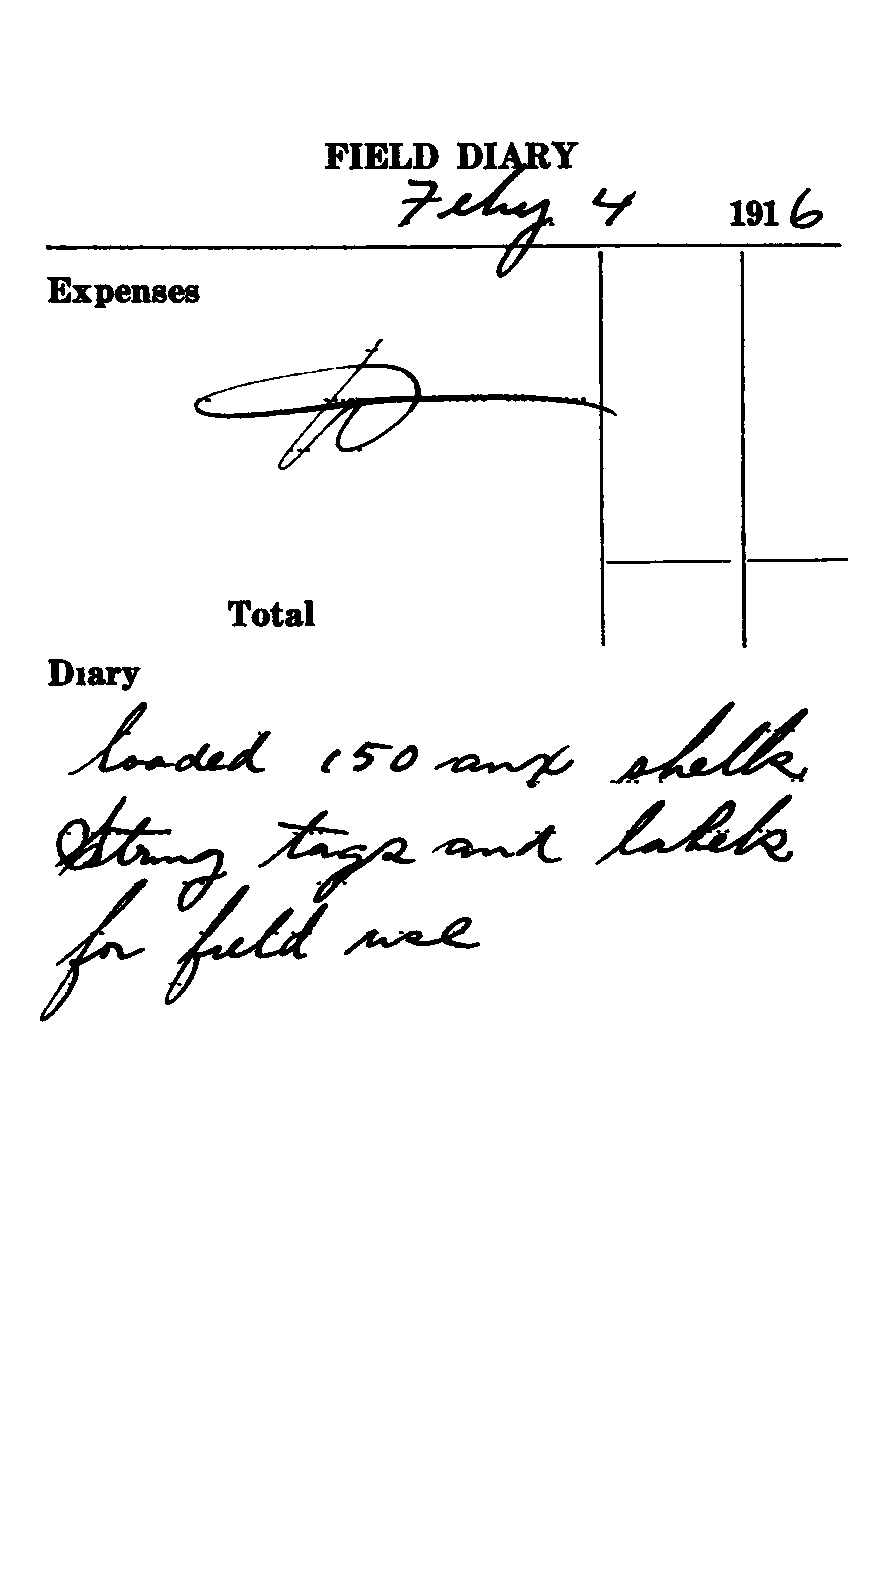 FIELD DIARY
Feby 4 1916
Expenses
Total
Diary
loaded 150 aux shells
String tags and labels
for field use